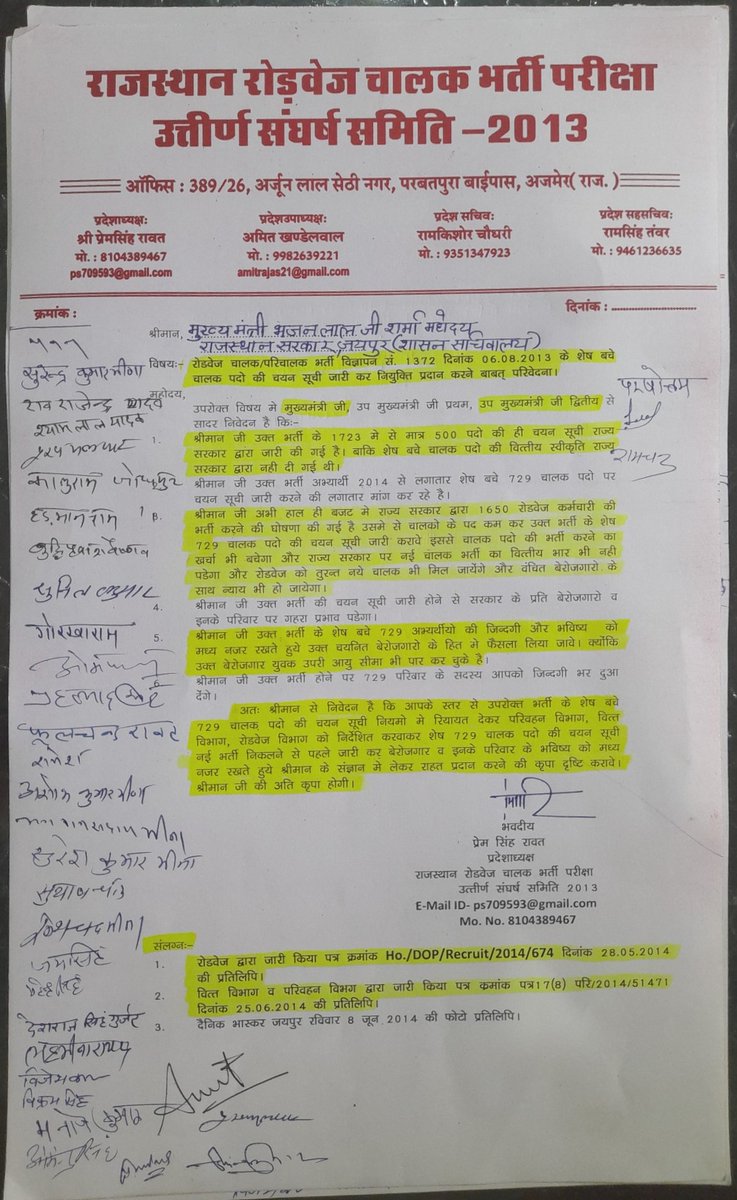 राजस्थान रोड़वेज चालक भर्ती परीक्षा
उत्तीर्ण संघर्ष समिति –2013
ऑफिस : 389/26, अर्जून लाल सेठी नगर, परबतपुरा बाईपास, अजमेर( राज. )
प्रदेशाध्यक्षः
श्री प्रेमसिंह रावत
मो. : 8104389467
ps709593@gmail.com
प्रदेशउपाध्यक्षः
अमित खण्डेलवाल
मो. : 9982639221
amitrajas21@gmail.com
प्रदेश सचिवः
रामकिशोर चौधरी
मो. : 9351347923
प्रदेश सहसचिवः
रामसिंह तंवर
मो. : 9461236635
क्रमांक :
दिनांक : ........................
श्रीमान, मुख्य मंत्री भजन लाल जी शर्मा महोदय
राजस्थान सरकार, जयपुर (शासन सचिवालय)
विषयः- रोडवेज चालक/परिचालक भर्ती विज्ञापन सं. 1372 दिनांक 06.08.2013 के शेष बचे
चालक पदो की चयन सूची जारी कर नियुक्ति प्रदान करने बाबत् परिवेदना।
महोदय,
उपरोक्त विषय मे मुख्यमंत्री जी, उप मुख्यमंत्री जी प्रथम, उप मुख्यमंत्री जी द्वितीय से
सादर निवेदन है कि:-
1. श्रीमान जी उक्त भर्ती के 1723 मे से मात्र 500 पदो की ही चयन सूची राज्य
सरकार द्वारा जारी की गई है। बाकि शेष बचे चालक पदो की वित्तीय स्वीकृति राज्य
सरकार द्वारा नही दी गई थी।
श्रीमान जी उक्त भर्ती अभ्यार्थी 2014 से लगातार शेष बचे 729 चालक पदो पर
चयन सूची जारी करने की लगातार मांग कर रहे है।
श्रीमान जी अभी हाल ही बजट मे राज्य सरकार द्वारा 1650 रोडवेज कर्मचारी की
भर्ती करने की घोषणा की गई है उसमे से चालको के पद कम कर उक्त भर्ती के शेष
729 चालक पदो की चयन सूची जारी करावे इससे चालक पदो की भर्ती करने का
खर्चा भी बचेगा और राज्य सरकार पर नई चालक भर्ती का वित्तीय भार भी नही
पडेगा और रोडवेज को तुरन्त नये चालक भी मिल जायेंगे और वंचित बेरोजगारो के
साथ न्याय भी हो जायेगा।
श्रीमान जी उक्त भर्ती की चयन सूची जारी होने से सरकार के प्रति बेरोजगारो व
इनके परिवार पर गहरा प्रभाव पडेगा।
5. श्रीमान जी उक्त भर्ती के शेष बचे 729 अभ्यर्थीयो की जिन्दगी और भविष्य को
मध्य नजर रखते हुये उक्त चयनित बेरोजगारो के हित मे फैसला लिया जावे। क्योंकि
उक्त बेरोजगार युवक उपरी आयु सीमा भी पार कर चुके है।
6 श्रीमान जी उक्त भर्ती होने पर 729 परिवार के सदस्य आपको जिन्दगी भर दुआ
देंगे।
अतः श्रीमान से निवेदन है कि आपके स्तर से उपरोक्त भर्ती के शेष बचे
729 चालक पदो की चयन सूची नियमो मे रियायत देकर परिवहन विभाग, वित्त
विभाग, रोडवेज विभाग को निर्देशित करवाकर शेष 729 चालक पदो की चयन सूची
नई भर्ती निकलने से पहले जारी कर बेरोजगार व इनके परिवार के भविष्य को मध्य
नजर रखते हुये श्रीमान के संज्ञान मे लेकर राहत प्रदान करने की कृपा दृष्टि करावे।
श्रीमान जी की अति कृपा होगी।
भवदीय
प्रेम सिंह रावत
प्रदेशाध्यक्ष
राजस्थान रोडवेज चालक भर्ती परीक्षा
उत्तीर्ण संघर्ष समिति 2013
E-Mail ID- ps709593@gmail.com
Mo. No. 8104389467
संलग्नः-
1. रोडवेज द्वारा जारी किया पत्र क्रमांक Ho./DOP/Recruit/2014/674 दिनांक 28.05.2014
की प्रतिलिपि।
2. वित्त विभाग व परिवहन विभग द्वारा जारी किया पत्र क्रमांक पत्र17(8) परि/2014/51471
दिनांक 25.06.2014 की प्रतिलिपि।
3. दैनिक भास्कर जयपुर रविवार 8 जून 2014 की फोटो प्रतिलिपि।
सुरेन्द्र कुमार मीना
राव राजेन्द्र यादव
श्याम लाल यादव
हड़मानराम
सुमित कुमार
गोरखाराम
फूलचन्द रावट
हरेश कुमार मीना
देशराज सिंह गुर्जर
विक्रम सिंह
मनोज कुमार
Amit